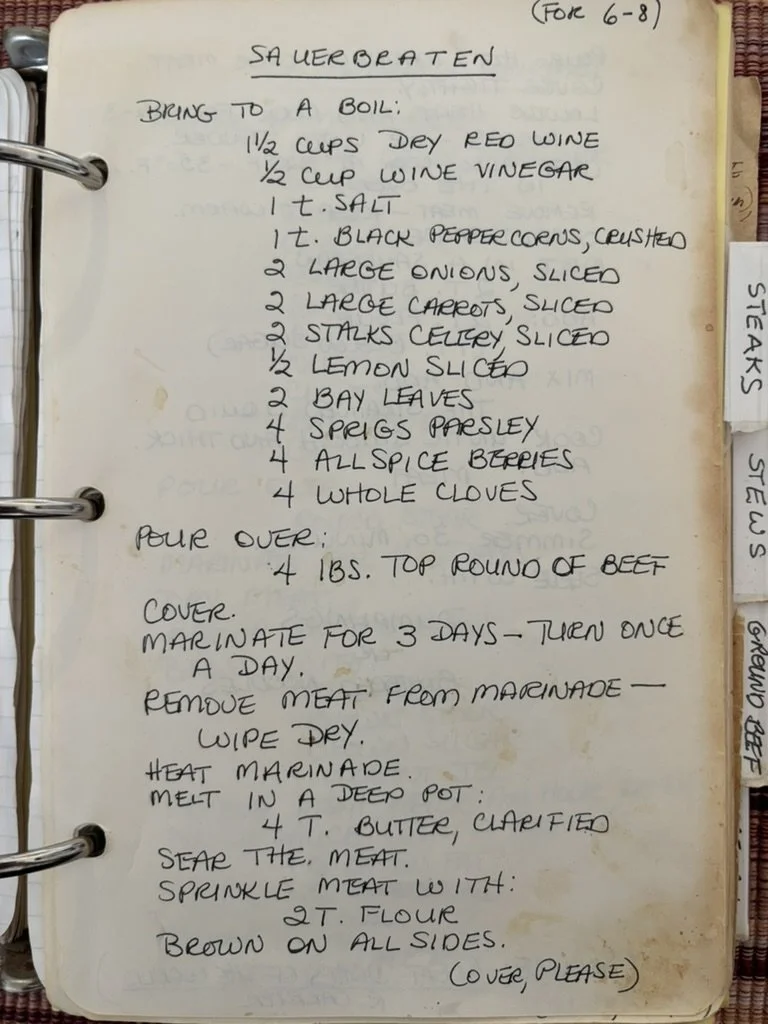 (FOR 6-8)
SAUERBRATEN
BRING TO A BOIL:
1 1/2 CUPS DRY RED WINE
1/2 CUP WINE VINEGAR
1 t. SALT
1 t. BLACK PEPPERCORNS, CRUSHED
2 LARGE ONIONS, SLICED
2 LARGE CARROTS, SLICED
2 STALKS CELERY, SLICED
1/2 LEMON SLICED
2 BAY LEAVES
4 SPRIGS PARSLEY
4 ALLSPICE BERRIES
4 WHOLE CLOVES
POUR OVER:
4 lBS. TOP ROUND OF BEEF
COVER.
MARINATE FOR 3 DAYS — TURN ONCE
A DAY.
REMOVE MEAT FROM MARINADE —
WIPE DRY.
HEAT MARINADE.
MELT IN A DEEP POT:
4 T. BUTTER, CLARIFIED
SEAR THE. MEAT.
SPRINKLE MEAT WITH:
2 T. FLOUR
BROWN ON ALL SIDES.
(OVER, PLEASE)
STEAKS
STEWS
GROUND BEEF